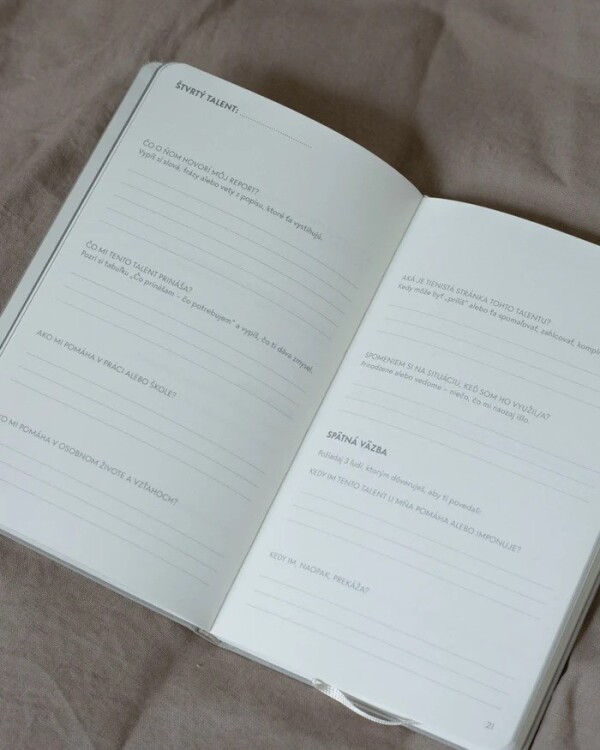 ŠTVRTÝ TALENT:
ČO O ŇOM HOVORÍ MÔJ REPORT?
Vypíš si slová, frázy alebo vety z popisu, ktoré ťa vystihujú.
ČO MI TENTO TALENT PRINÁŠA?
Pozri si tabuľku „Čo prinášam – čo potrebujem" a vypíš, čo ti dáva zmysel.
AKO MI POMÁHA V PRÁCI ALEBO ŠKOLE?
MI POMÁHA V OSOBNOM ŽIVOTE A VZŤAHOCH?
AKÁ JE TIENISTÁ STRÁNKA TOHTO TALENTU?
Kedy môže byť „príliš" alebo ťa spomaľovať, zahlcovať,
SPOMENIEM SI NA SITUÁCIU, KEĎ SOM HO VYUŽIL/A?
alebo vedome – niečo, čo mi naozaj išlo.
SPÄTNÁ VÄZBA
Požiadaj 3 ľudí, ktorým dôveruješ, aby ti povedali:
KEDY IM TENTO TALENT U MŇA POMÁHA ALEBO IMPONUJE?
KEDY IM, NAOPAK, PREKÁŽA?
21